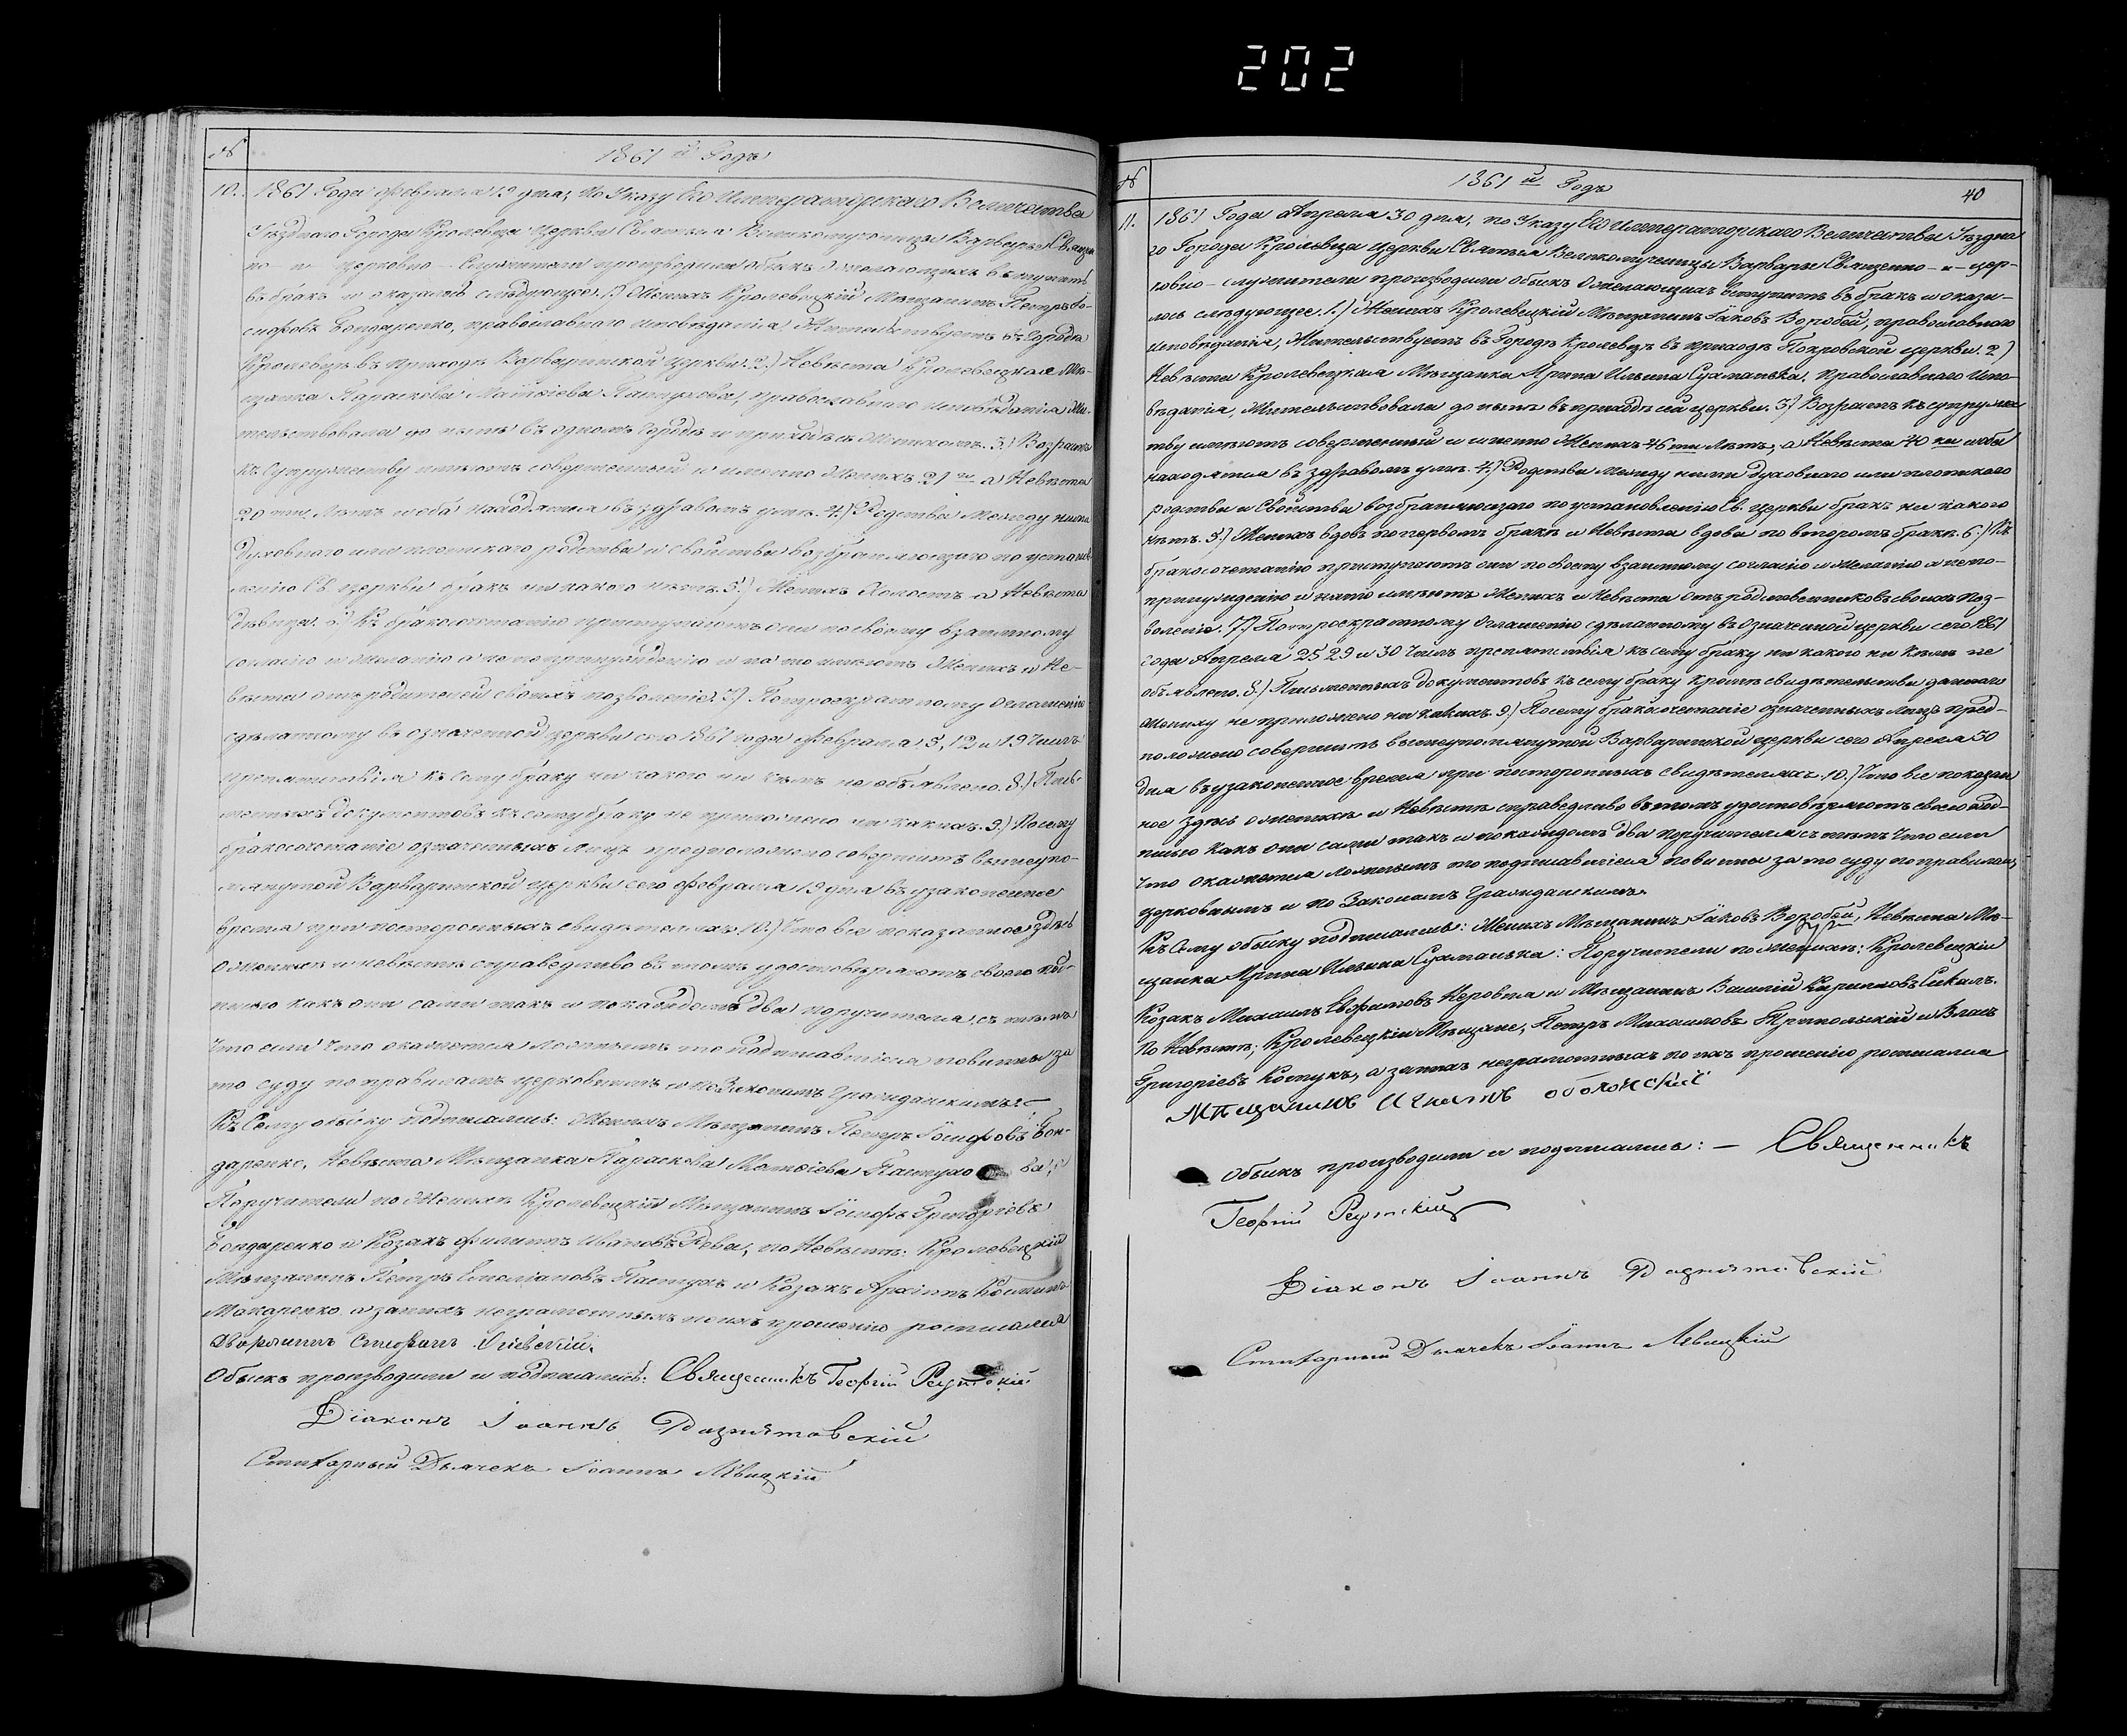 202
№
1861й Годъ
10. 1861 Года Февраля 19 дня, по Указу Его Императорскаго Величества
Уѣзднаго Города Кролевца Церкви Святыя Великомученицы Варвары Священ
но - и - церковно - служители производили обыскъ о желающихъ вступить
въ бракъ и оказалось слѣдующее. 1.) Женихъ Кролевецкій Мѣщанинъ Петръ Іо-
сифовъ Бондаренко, православнаго исповѣданія Жительствуетъ въ Городѣ
Кролевцѣ въ приходѣ Варваринской церкви. 2.) Невѣста Кролевецкая Мѣ-
щанка Параскева Матѳіева Пастухова, православнаго исповѣданія Жи-
тельствовала до нынѣ въ одномъ Городѣ и приходѣ съ Женихомъ. 3.) Возрастъ
къ Супружеству имѣютъ совершенный и именно Женихъ 21 а Невѣста
20 ти Лѣтъ и оба находятся въ здравомъ умѣ. 4.) Родства Между ними
Духовнаго или плотскаго родства и свойства возбраняющаго по установ
ленію Св. церкви бракъ ни какого нѣтъ. 5.) Женихъ Холостъ а Невѣста
дѣвица. 6.) Къ бракосочетанію приступаютъ они по своему взаимному
согласію и желанію а не по принужденію и на то имѣютъ Женихъ и Не-
вѣста отъ родителей своихъ позволеніе. 7.) По троекратному Оглашенію
сдѣланному въ означенной церкви сего 1861 года Февраля 5, 12 и 19 Числъ
препятствія къ сему браку ни какого ни кѣмъ не объявлено. 8.) Пись-
менныхъ документовъ къ сему браку не приложено ни какихъ. 9.) Посему
бракосочетаніе означенныхъ лицъ предположено совершить вышеупо-
мянутой Варваринской церкви сего Февраля 19 дня въ узаконенное
время при постороннихъ свидѣтеляхъ. 10.) Что все показанное здѣсь
о Женихѣ и невѣстѣ справедливо въ томъ удостовѣряютъ своею под-
писью какъ они сами такъ и по каждомъ два поручителя, съ тѣмъ
что если что окажется Ложнымъ то подписавшіеся повинны за
то суду по правиламъ церковнымъ и по Законамъ Гражданскимъ.
Къ Сему обыску подписались: Женихъ Мѣщанинъ Петръ Іосифовъ Бон-
даренко, Невѣста Мѣщанка Параскева Матѳіева Пастухо ва;
Поручители по Женихѣ Кролевецкій Мѣщанинъ Іосифъ Григоріевъ
Бондаренко и Козакъ Филипъ Ивановъ Рева, по Невѣстѣ: Кролевецкій
Мѣщанинъ Петръ Емеліановъ Пастухъ и Козакъ Архипъ
Макаренко а за нихъ неграмотныхъ по ихъ прошенію росписался
Дворянинъ Стефанъ
Обыскъ производили и подписались: Священникъ Георгій Реутскій
Діаконъ Іоаннъ
Стихарный Дьячекъ Іоаннъ Левицкій
№
1861й Годъ
40
11. 1861 Года Апреля 30 дня, по Указу Его Императорскаго Величества Уѣздна
го Города Кролевца церкви Святыя Великомученицы Варвары Священно - и - цер-
ковно - служители производили обыскъ о желающихъ вступить въ бракъ и оказа-
лось слѣдующее. 1.) Женихъ Кролевецкій Мѣщанинъ Іаковъ Воробей, православнаго
исповѣданія, Жительствуетъ въ Городѣ Кролевцѣ въ приходѣ Покровской церкви. 2.)
Невѣста Кролевецкая Мѣщанка Ирина Ильина Сухманька, православнаго Испо-
вѣданія, Жительствовала до нынѣ въ приходѣ сей церкви. 3.) Возрастъ къ супруже
тву имѣютъ совершенный и именно Женихъ 46 ти Лѣтъ, а Невѣста 40 ка и оба
находятся въ здравомъ умѣ. 4.) Родства Между ними Духовнаго или плотскаго
родства и Свойства возбраняющаго по установленію Св. церкви бракъ ни какого
нѣтъ. 5.) Женихъ вдовъ по первомъ бракѣ и Невѣста вдова по второмъ бракѣ. 6.) Къ
бракосочетанію приступаютъ они по своему взаимному согласію и Желанію а не по-
принужденію и на то имѣютъ Женихъ и Невѣста отъ родственниковъ своихъ поз-
воленіе. 7.) По троекратному Оглашенію сдѣланному въ означенной церкви сего 1861
года Апреля 25 29 и 30 Числъ препятствія къ сему браку ни какого ни кѣмъ не
объявлено. 8.) Письменныхъ документовъ къ сему браку кромѣ свидѣтельства даннаго
жениху не приложено ни какихъ. 9.) Посему бракосочетаніе означенныхъ Лицъ пред-
положено совершить вышеупомянутой Варваринской церкви сего Апреля 30
дня въ узаконенное время при постороннихъ свидѣтеляхъ. 10.) Что все показан
ное здѣсь о женихѣ и Невѣстѣ справедливо въ томъ удостовѣряютъ своею под-
писью какъ они сами такъ и по каждомъ два поручителя съ тѣмъ что если
что окажется ложнымъ то подписавшіеся повинны за то суду по правиламъ
церковнымъ и по Законамъ Гражданскимъ.
Къ Сему обыску подписались: Женихъ Мѣщанинъ Іаковъ Воробей, Невѣста Мѣ-
щанка Ирина Ильина Сухманька: Поручители по женихѣ: Кролевецкій
Козакъ Михаилъ Евфимовъ и Мѣщанинъ Василій Кириловъ
По Невѣстѣ; Кролевецкіи Мѣщане, Петръ Михаиловъ и Власъ
Григоріевъ Костукъ, а за нихъ неграмотныхъ по ихъ прошенію росписался
Мѣщанинъ Игнатъ оболонскій
Обыскъ производили и подписались: - Священникъ
Георгій Реутскій
Діаконъ Іоаннъ
Стихарный Дьячекъ Іоаннъ Левицкій